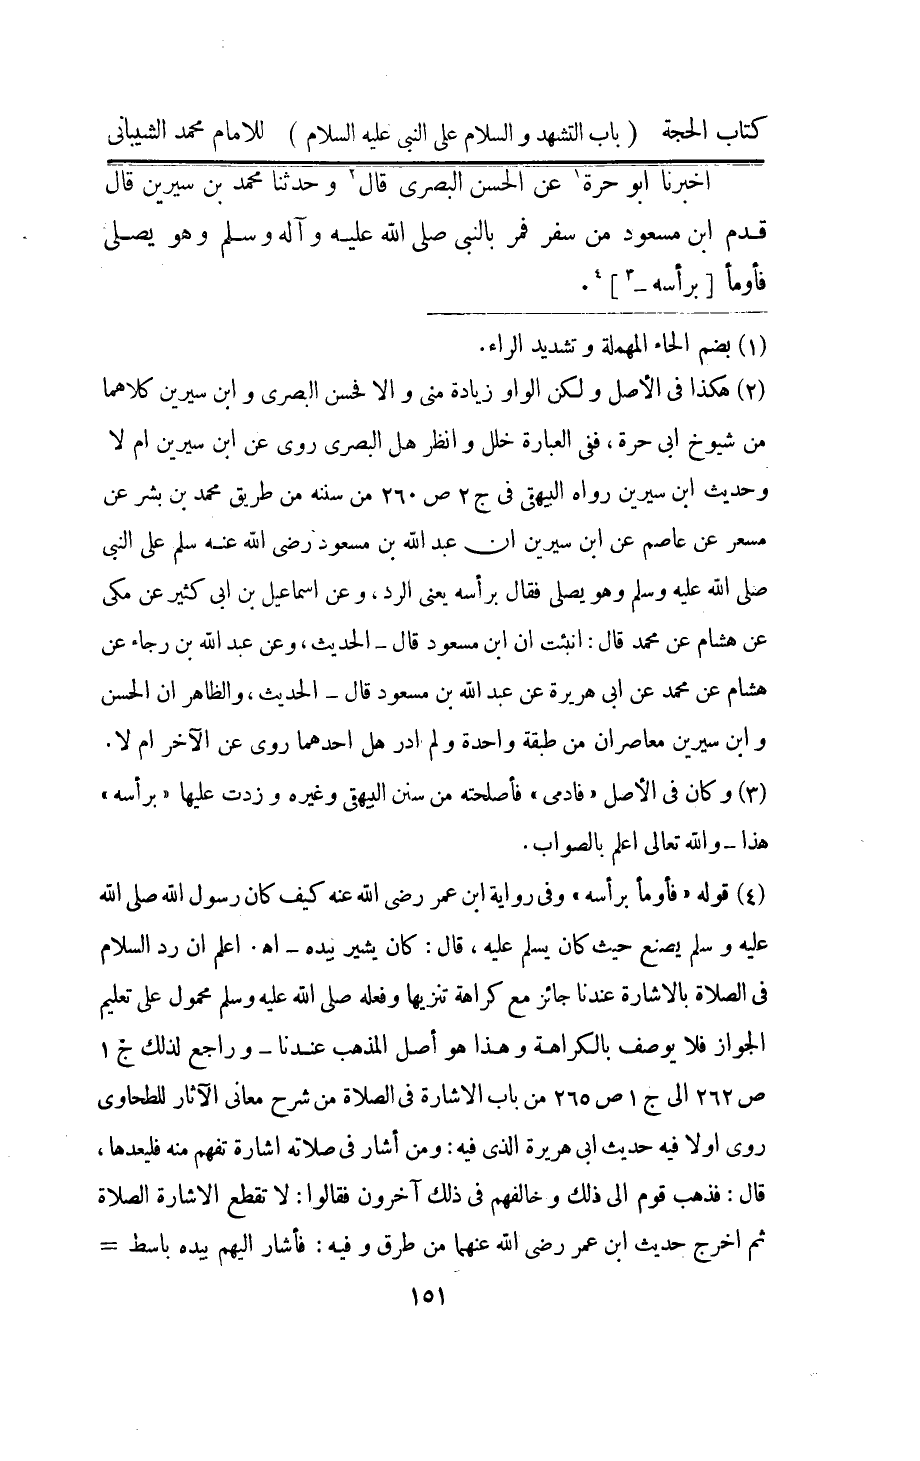 كتاب الحجة ( باب التشهد و السلام على النبى عليه السلام ) للامام محمد الشيبانى
اخبرنا ابو حرة١ عن الحسن البصرى قال٢ و حدثنا محمد بن سيرين قال
قدم ابن مسعود من سفر فمر بالنبى صلى الله عليه و آله و سلم و هو يصلى
فأومأ [ برأسه ـ٣ ]٤ ٠
(١) بضم الحاء المهملة و تشديد الراء ٠
(٢) هكذا فى الأصل و لكن الواو زيادة منى و الا فحسن البصرى و ابن سيرين كلاهما
من شيوخ ابى حرة ، ففى العبارة خلل و انظر هل البصرى روى عن ابن سيرين ام لا
و حديث ابن سيرين رواه البيهقى فى ج ٢ ص ٢٦٠ من سننه من طريق محمد بن بشر عن
مسعر عن عاصم عن ابن سيرين ان عبد الله بن مسعود رضى الله عنه سلم على النبى
صلى الله عليه وسلم وهو يصلى فقال برأسه يعنى الرد ، و عن اسماعيل بن ابى كثير عن مكى
عن هشام عن محمد قال : انبئت ان ابن مسعود قال ـ الحديث ، وعن عبد الله بن رجاء عن
هشام عن محمد عن ابى هريرة عن عبد الله بن مسعود قال ـ الحديث ، والظاهر ان الحسن
و ابن سيرين معاصران من طبقة واحدة و لم ادر هل احدهما روى عن الآخر ام لا ٠
(٣) و كان فى الأصل « فادمى » فأصلحته من سنن البيهقى وغيره و زدت عليها « برأسه »
هذا ـ والله تعالى اعلم بالصواب ٠
(٤) قوله « فأومأ برأسه » وفى رواية ابن عمر رضى الله عنه كيف كان رسول الله صلى الله
عليه و سلم يصنع حيث كان يسلم عليه ، قال : كان يشير بيده ـ اه ٠ اعلم ان رد السلام
فى الصلاة بالاشارة عندنا جائز مع كراهة تنزيها وفعله صلى الله عليه وسلم محمول على تعليم
الجواز فلا يوصف بالكراهة و هذا هو أصل المذهب عندنا ـ و راجع لذلك ج ١
ص ٢٦٢ الى ج ١ ص ٢٦٥ من باب الاشارة فى الصلاة من شرح معانى الآثار للطحاوى
روى اولا فيه حديث ابى هريرة الذى فيه : ومن أشار فى صلاته اشارة تفهم منه فليعدها ،
قال : فذهب قوم الى ذلك و خالفهم فى ذلك آخرون فقالوا : لا تقطع الاشارة الصلاة
ثم اخرج حديث ابن عمر رضى الله عنهما من طرق و فيه : فأشار اليهم بيده باسط =
١٥١